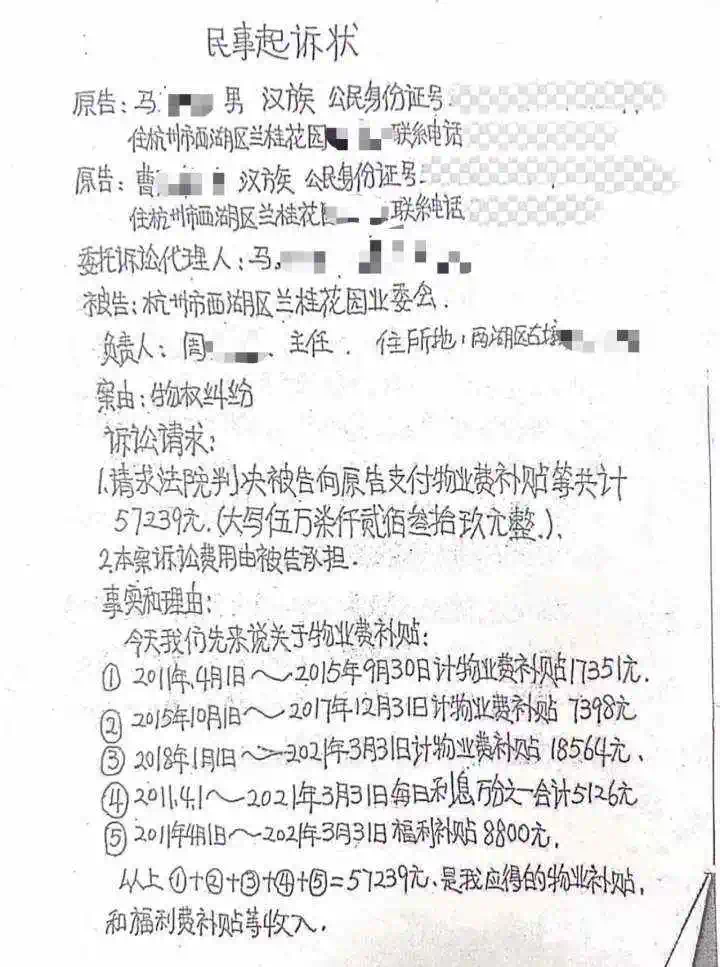 民事起诉状
原告:马 男 汉族 公民身份证号
住杭州市西湖区兰桂花园 联系电话
原告:曹 汉族 公民身份证号
住杭州市西湖区兰桂花园 联系电话
委托诉讼代理人:马
被告:杭州市西湖区兰桂花园业委会.
负责人:周 、主任. 住所地:西湖区古墩
案由:物权纠纷
诉讼请求:
1.请求法院判决被告向原告支付物业费补贴等共计
57239元.(大写伍万柒仟贰佰叁拾玖元整.).
2.本案诉讼费用由被告承担.
事实和理由:
今天我们先来说关于物业费补贴:
① 2011年4月1日～2015年9月30日计物业费补贴17351元.
② 2015年10月1日～2017年12月31日计物业费补贴 7398元
③ 2018年1月1日～2021年3月31日计物业费补贴 18564元、
④ 2011.4.1～2021年3月31日每日利息万分之一合计5126元
⑤ 2011年4月1日～2021年3月31日福利补贴8800元.
以上①+②+③+④+⑤=57239元.是我应得的物业补贴,
和福利费补贴等收入.